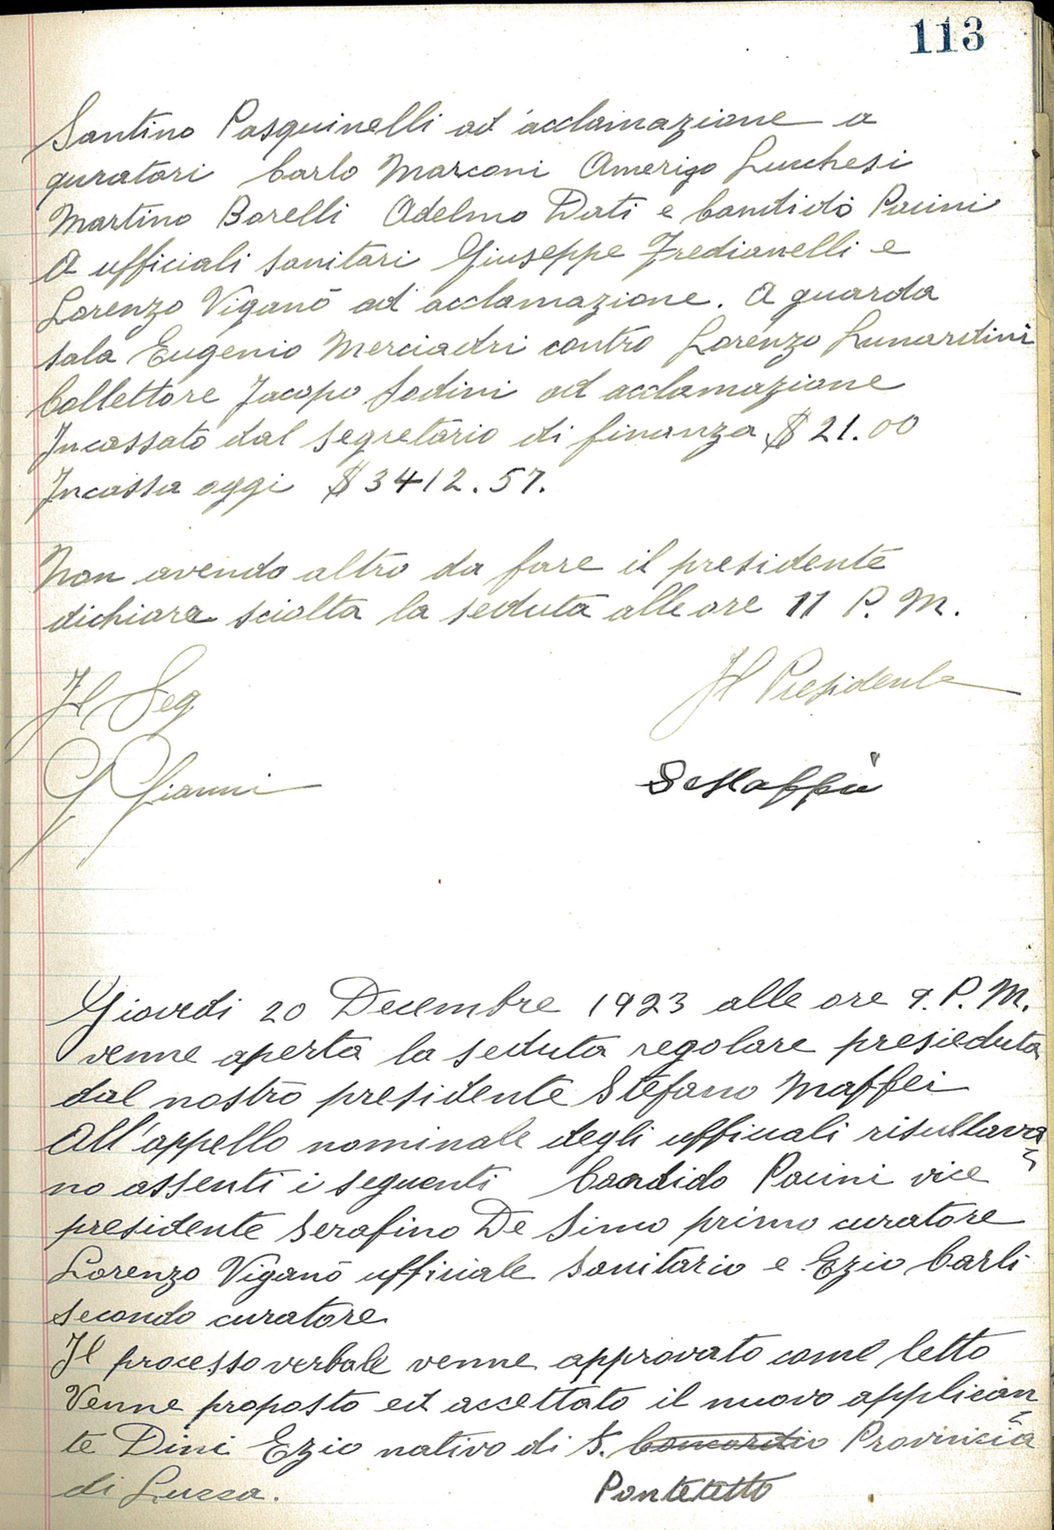 113
Santino Pasquinelli ad acclamazione a
quratori Carlo Marconi Amerigo Lucchesi
Martino Borelli Adelmo Dati e Candido Pacini
A ufficiali sanitari Giuseppe Fredianelli e
Lorenzo Viganò ad acclamazione. A guarda
sala Eugenio Merciadri contro Lorenzo Lunardini
Collettore Jacopo Sodini ad acclamazione
Incassato dal segretario di finanza $ 21.00
Incassa oggi $ 3412.57.
Non avendo altro da fare il presidente
dichiara sciolta la seduta alle ore 11 P. M.
Il Seg
Il Presidente
G Gianni
S Maffei
Giovedi 20 Decembre 1923 alle ore 9. P. M.
venne aperta la seduta regolare presieduta
dal nostro presidente Stefano Maffei
All'appello nominale degli ufficali risultava
no assenti i seguenti Candido Pacini vice
presidente Serafino De Simo primo curatore
Lorenzo Viganò ufficiale sanitario e Ezio Carli
secondo curatore
Il processo verbale venne approvato come letto
Venne proposto ed accettato il nuovo applican
te Dini Ezio nativo di S. Concordio Provincia
di Lucca. Pontetetto